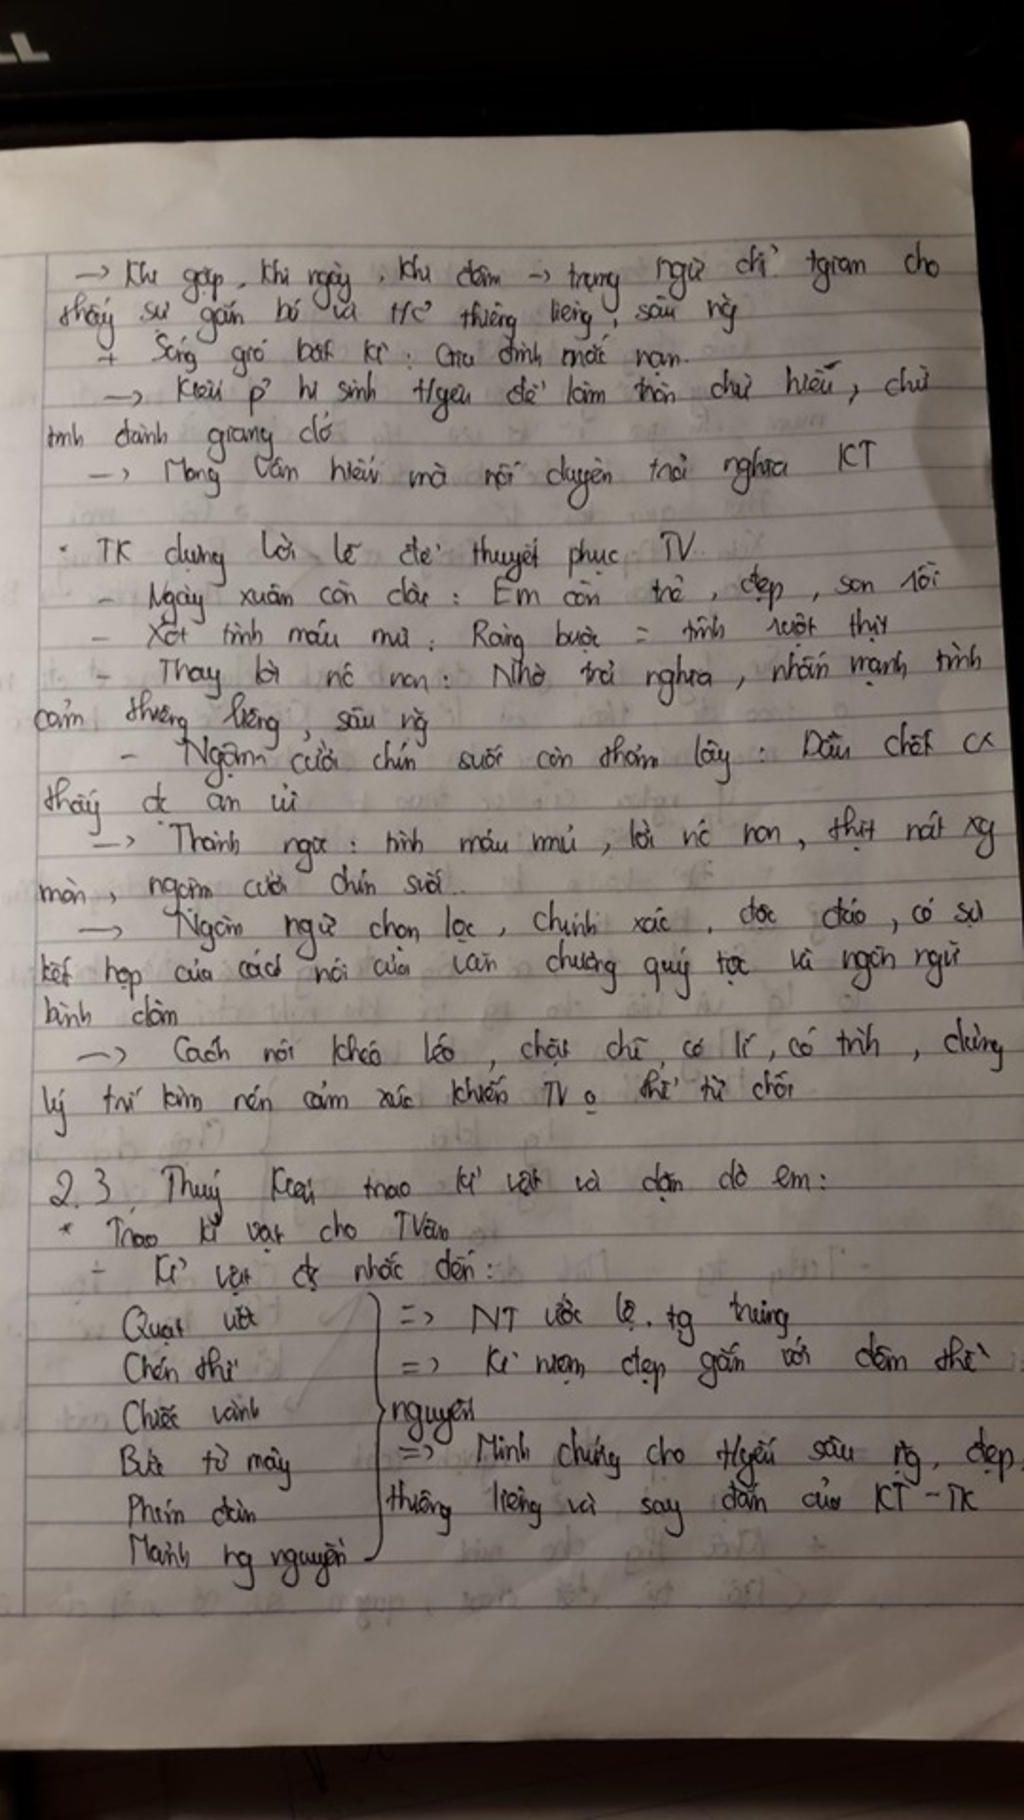 LL
→ Khi gặp, khi ngày, khi đêm → trạng ngữ chỉ tgian cho
thấy sự gắn bó và t/c thiêng liêng, sâu nặg
+ Sóng gió bất kì: Gia đình mắc nạn.
→ Kiều p' hi sinh t/yêu để làm tròn chữ hiếu, chữ
tình đành giang dở
→ Mong Vân hiểu mà nối duyên trả nghĩa KT
• TK dụng lời lẽ để thuyết phục TV
- Ngày xuân còn dài: Em còn trẻ, đẹp, son rỗi
- Xót tình máu mủ: Ràng buộc = tình ruột thịt
- Thay lời nc non: Nhờ trả nghĩa, nhấn mạnh tình
cảm thiêng liêng, sâu nặg
- Ngậm cười chín suối còn thơm lây: Dẫu chết cx
thấy đc an ủi
→ Thành ngữ: tình máu mủ, lời nc non, thịt nát xg
mòn, ngậm cười chín suối..
→ Ngôn ngữ chọn lọc, chính xác, độc đáo, có sự
kết hợp của cách nói của văn chương quý tộc và ngôn ngữ
bình dân
→ Cách nói khéo léo, chặt chẽ, có lí, có tình, dùng
lý trí kìm nén cảm xúc khiến TV o thể từ chối
2.3. Thuý Kiều trao kỉ vật và dặn dò em:
* Trao kỉ vật cho TVân
+ Kỉ vật đc nhắc đến:
Quạt ước => NT ước lệ. tg trưng
Chén thề => Kỉ niệm đẹp gắn với đêm thề
Chiếc vành nguyền
Bức tờ mây => Minh chứng cho t/yêu sâu nặg, đẹp,
Phím đàn thiêng liêng và say đắm của KT - TK
Mảnh hg nguyền